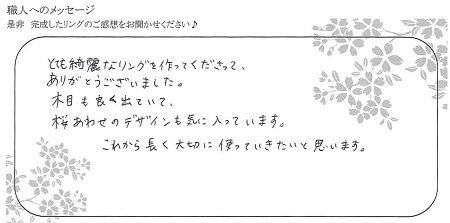 職人へのメッセージ
是非 完成したリングのご感想をお聞かせください♪
とても綺麗なリングを作ってくださって、
ありがとうございました。
木目も良く出ていて、
桜あわせのデザインも気に入っています。
これから長く大切に使っていきたいと思います。